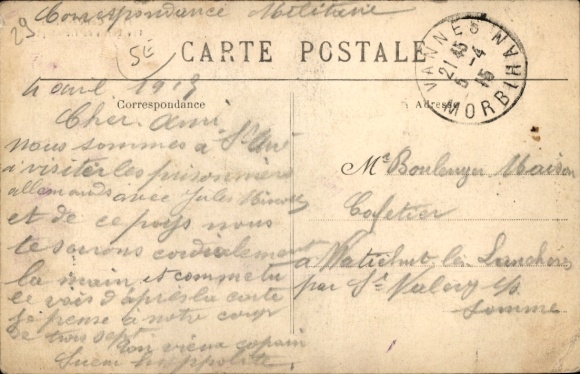 29
Correspondance Militaire
5E
CARTE POSTALE
VANNES MORBIHAN
21 45
5 - 4
15
4 avril 1915
Correspondance
Adresse
Cher Ami
nous sommes à St
à visiter les prisonniers
allemands avec Jules
et de ce pays nous
te serrons cordialement
la main et comme tu
le vois d'après la carte
je pense à notre coup
de trois sept
ton vieux copain
Hippolite
Mr Boulenger Maison
Cafetier
à Watiehut les
par St Valery s/s
Somme